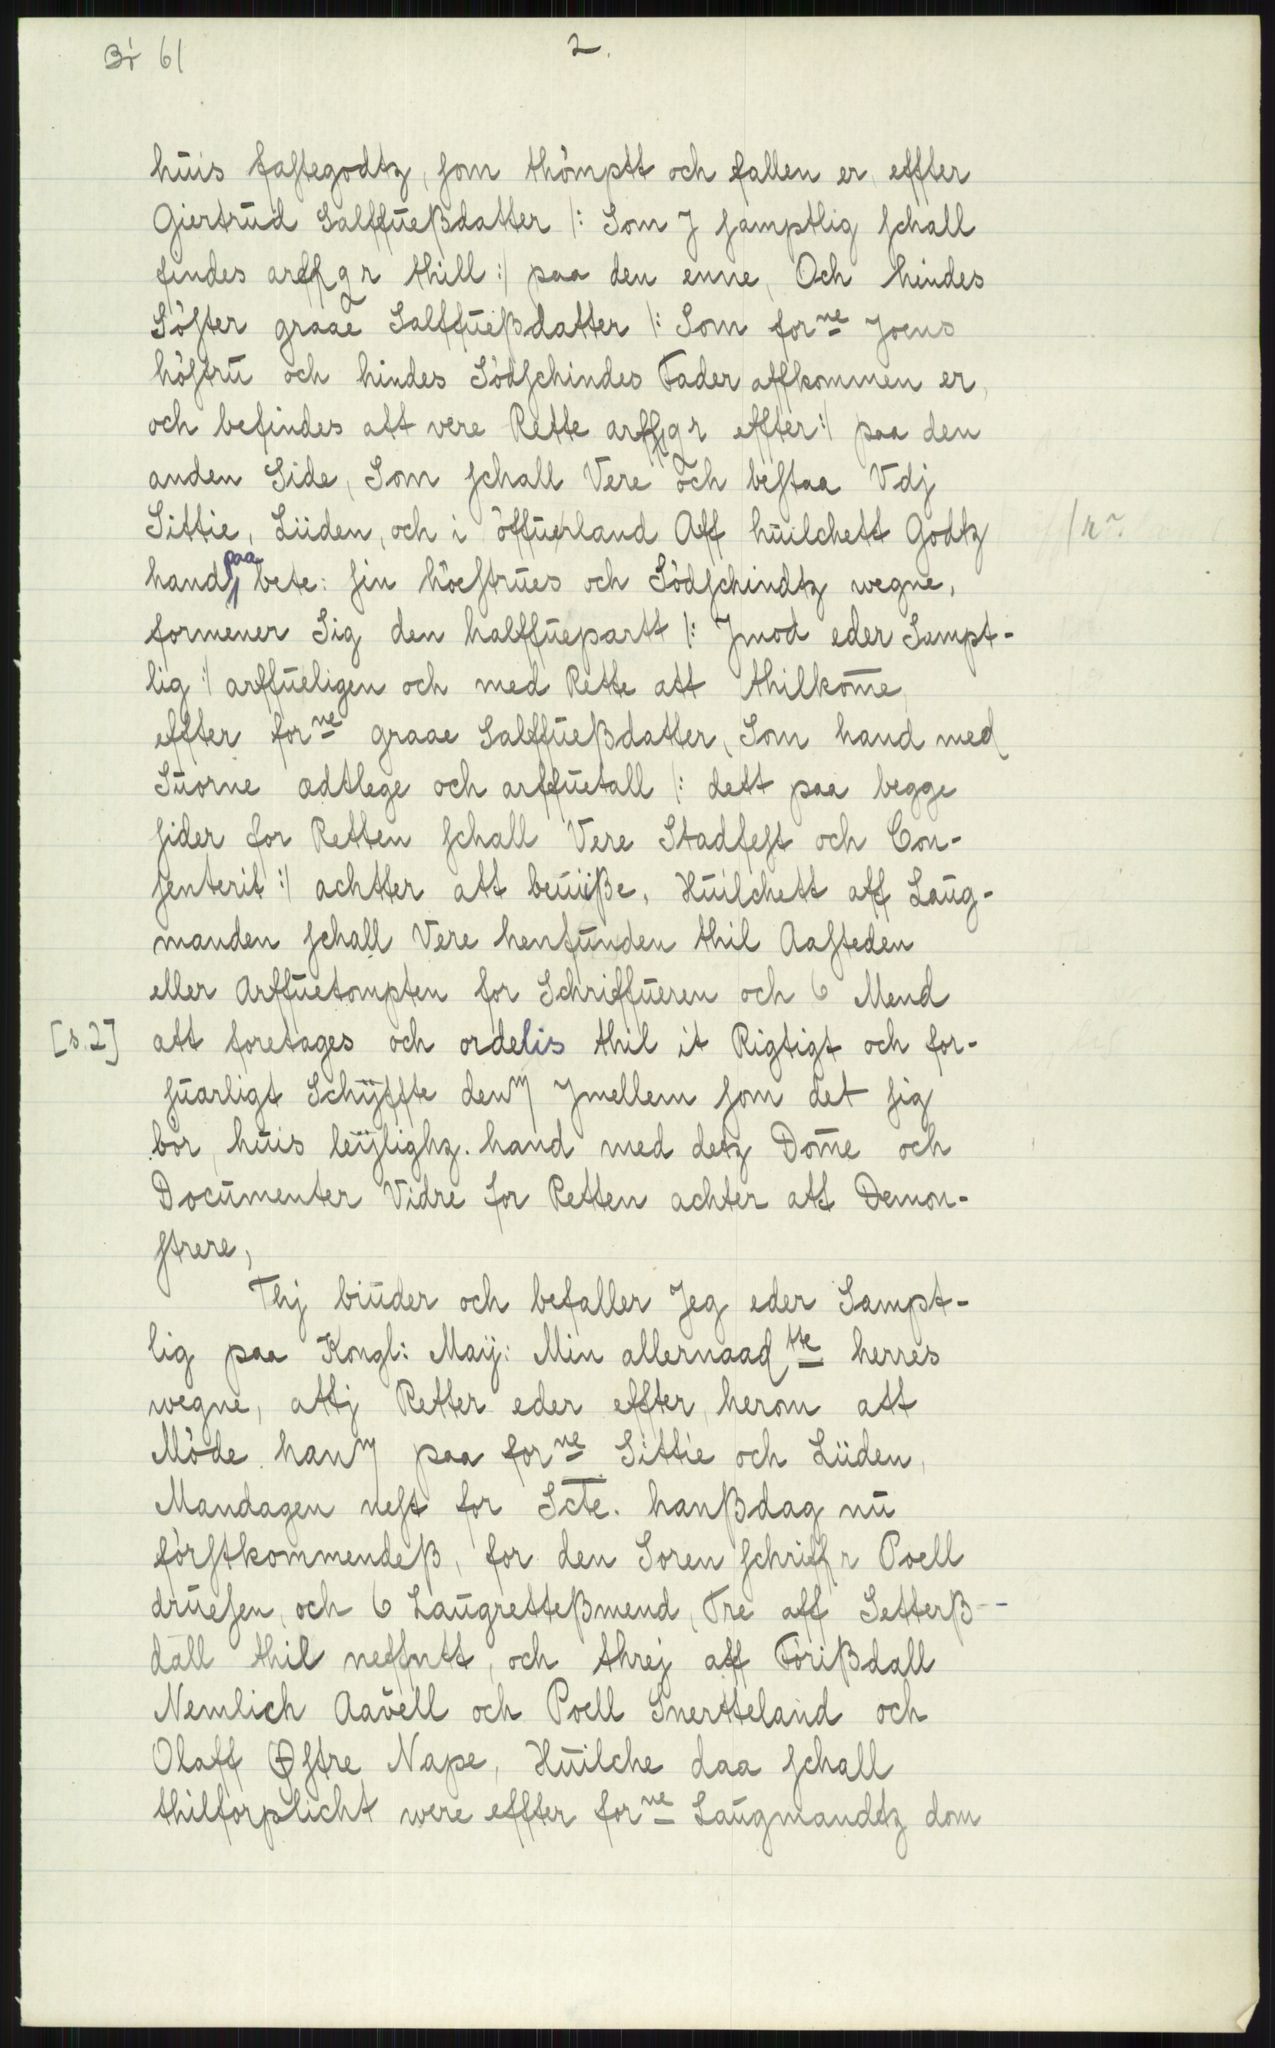 Br 61
2.
huis fastegodtz, som thömptt och fallen er effter
Giertrud Salffueßdatter /: Som J samptlig schall
findes arffgr thill :/ paa den enne, Och hindes
Söster graae Salffueßdatter /: Som forne Joens
höstru och hindes Södschindes Fader affkommen er,
och befindes att vere Rette arffgr effter :/ paa den
anden Side, Som schall Vere och bestaa Vdj
Sittie, Lüden, och i öffuerland Aff huilchett Godtz
/r~
hand paa bete: sin höestrues och Södschindtz wegne,
formener Sig den halffuepartt /: Jmod eder Sampt-
lig :/ arffueligen och med Rette att thilkome
effter forne graae Salffueßdatter, Som hand med
Suorne ædtlege och arffuetall /: dett paa begge
sider for Retten schall Vere Stadfest och Con-
senterit :/ achtter att beuiiße, Huilchett aff Laug-
manden schall Vere henfunden thil Aasteden
eller Arffuetompten for Schriffueren och 6 Mend
[s. 2] att foretages och ordelis thil it Rigtigt och for-
suarligt Schÿffte dem Jmellem som det sig
bör, huis leÿlighz. hand med detz Dome och
Documenter Vidre for Retten achter att Demon-
strere,
Thj biuder och befaller Jeg eder Sampt-
lig paa Kongl: Maÿ: Min allernaadste herres
wegne, attj Retter eder effter, herom att
Möde ham paa forne Sittie och Lüden,
Mandagen nest for Scte. hanßdag nu
förstkommendeß, for den Soren schriffr Poell
druesen, och 6 Laugretteßmend, Tre aff Setterß-
dall thil neffntt, och threj aff Förißdall
Nemlich Aavell och Poell Snertteland och
Olaff Østre Nape, Huilche daa schall
thilforplicht were effter forne Laugmandtz dom